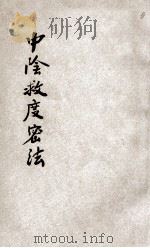 中陰救度密法
mtoou.info